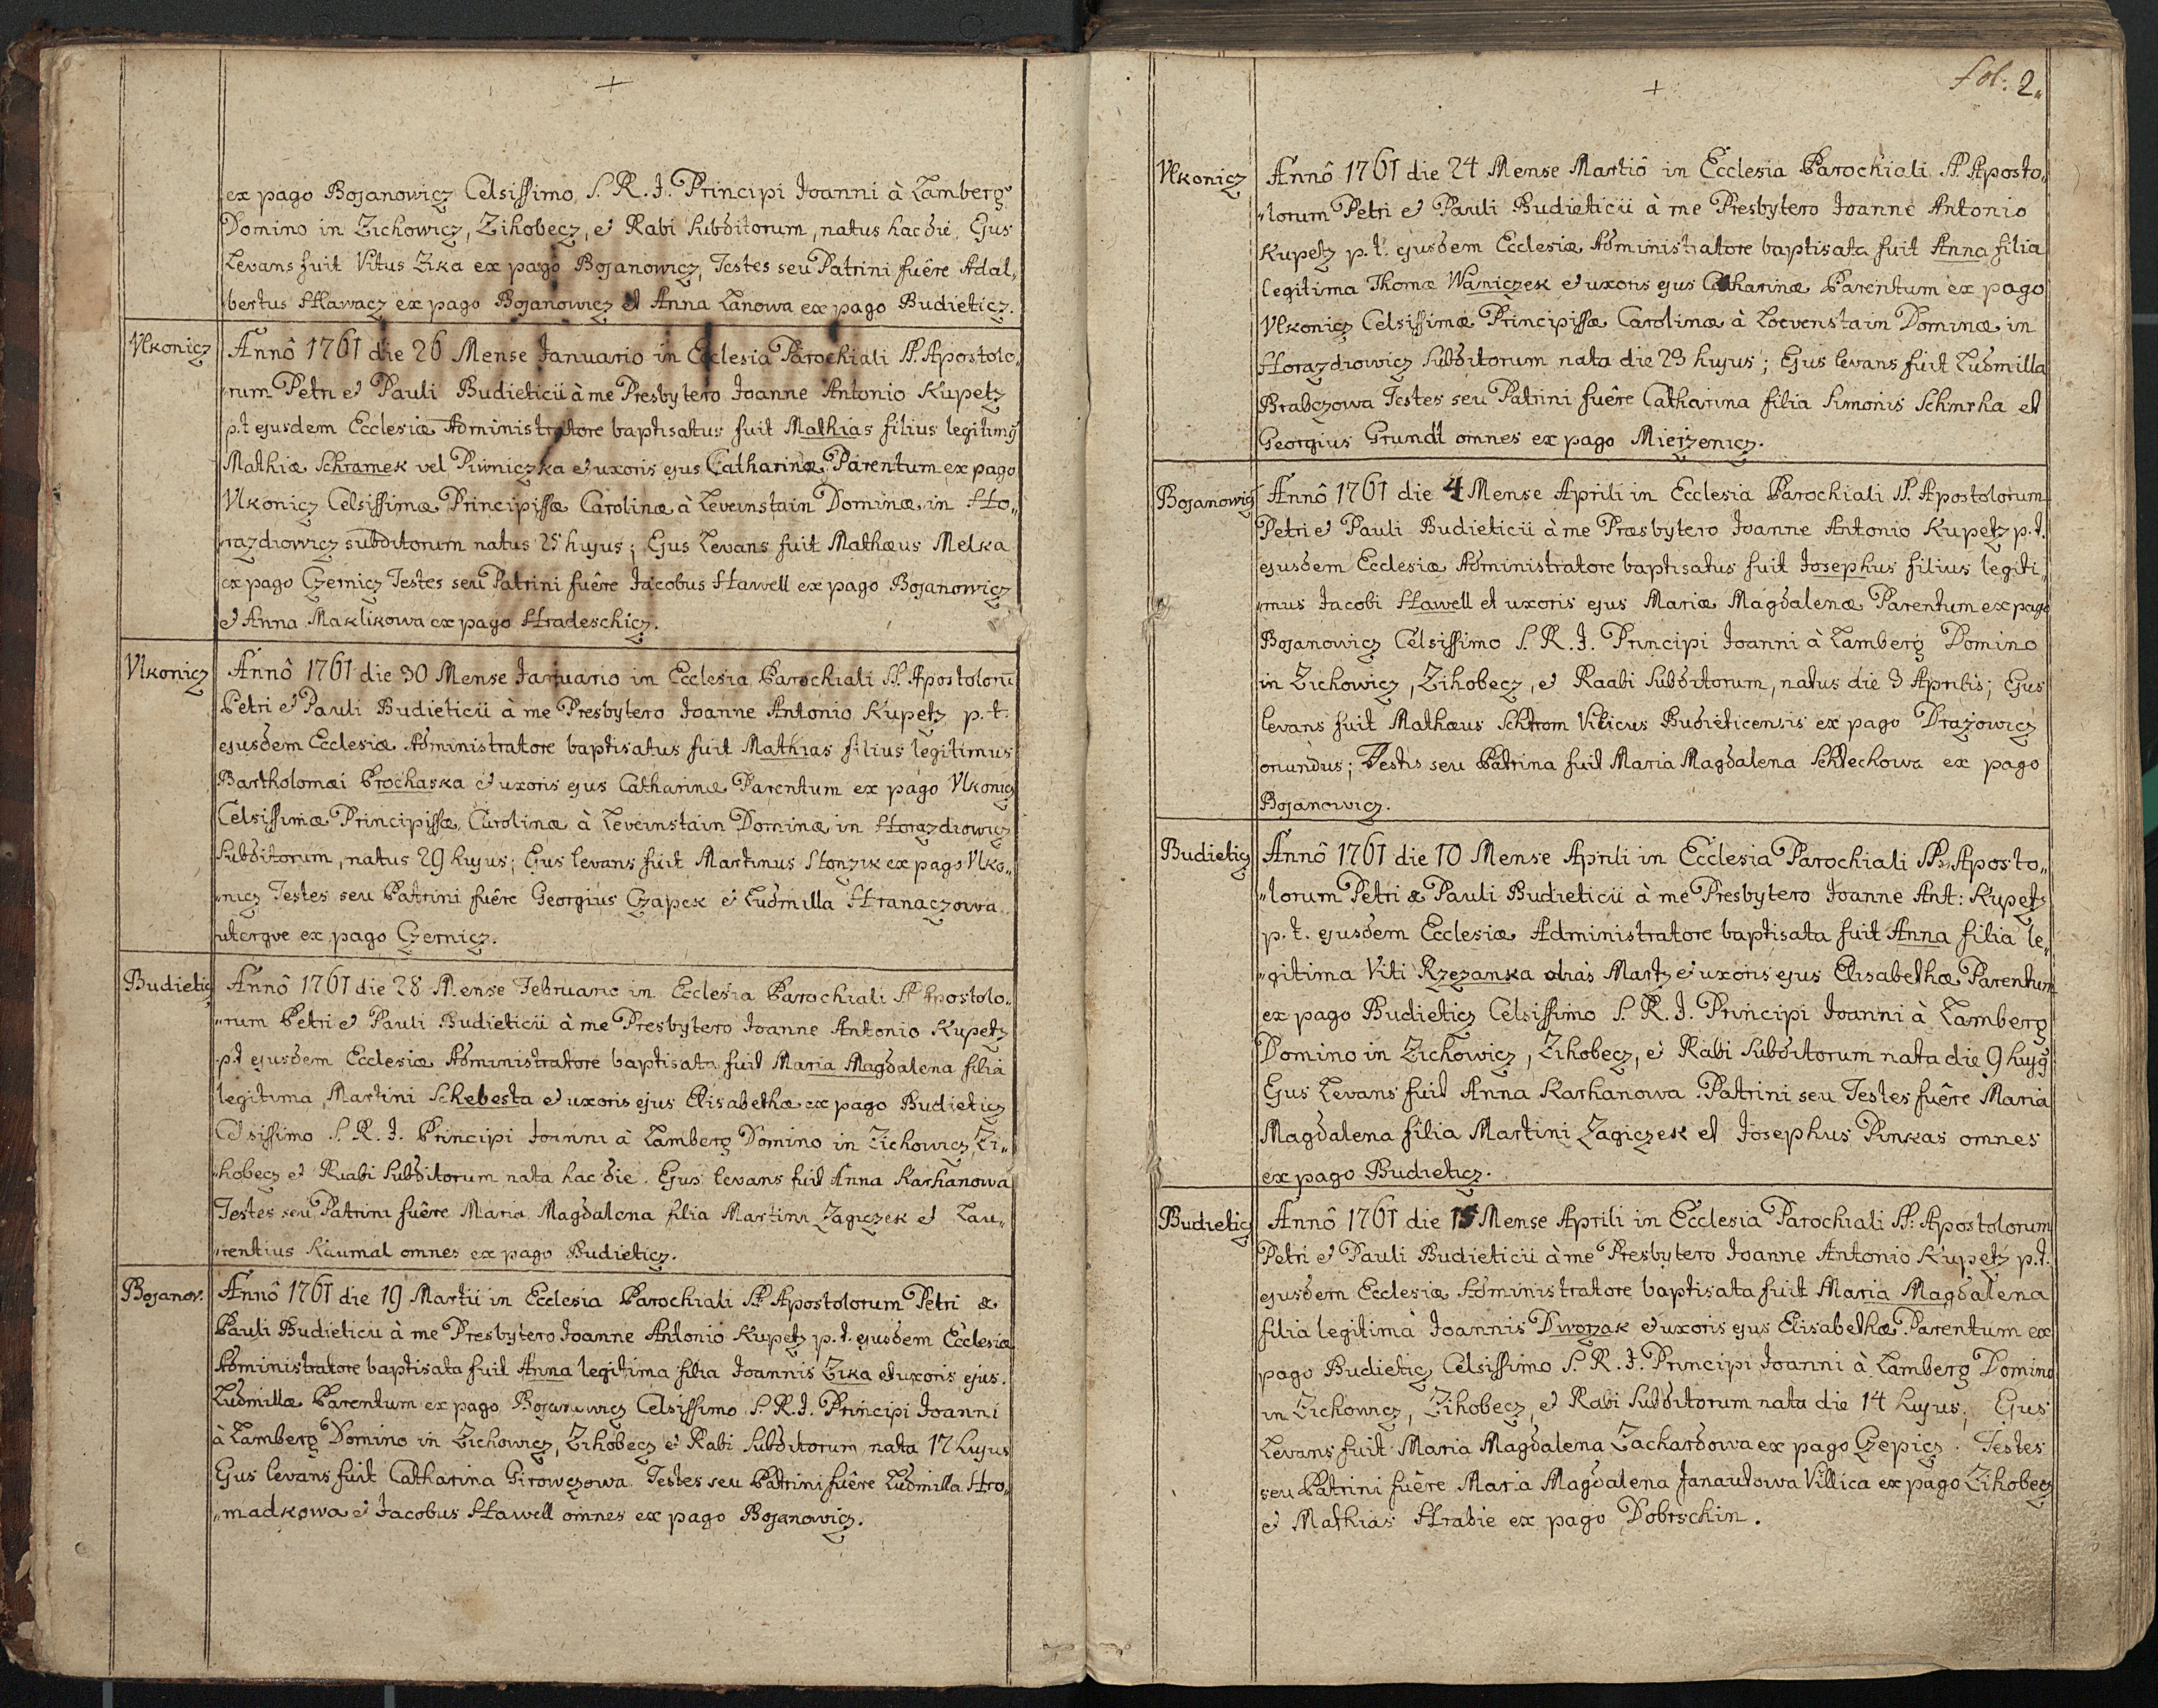 +
ex pago Bojanowicz Celsissimo S. R. I. Principi Joanni à Lamberg
Domino in Zichowicz, Zihobecz, et Rabi Subditorum, natus hac die. Ejus
Levans fuit Vitus Zika ex pago Bojanowicz, Testes seu Patrini fuêre Adal„
bertus Hlawacz ex pago Bojanowicz et Anna Lanowa ex pago Budieticz.
Vlkonicz
Annô 1761 die 26 Mense Januario in Ecclesia Parochiali SS. Apostolo„
„rum Petri et Pauli Budieticii à me Presbytero Joanne Antonio Kupetz
p.t ejusdem Ecclesiæ Administratore baptisatus fuit Mathias filius legitimg
Mathiæ Schramek vel Piwniczka et uxoris ejus Catharinæ Parentum ex pago
Vlkonicz Celsissimæ Principissæ Carolinæ à Leveinstain Dominæ in Ho„
„razdiowicz subditorum natus 25 hujus; Ejus Levans fuit Mathæus Melka
ex pago Czernicz Testes seu Patrini fuêre Jacobus Hawell ex pago Bojanowicz
et Anna Maklikowa ex pago Hradeschicz.
Vlkonicz
Annô 1761 die 30 Mense Januario in Ecclesia Parochiali SS. Apostolorū
Petri et Pauli Budieticii à me Presbytero Joanne Antonio Kupetz p.t.
ejusdem Ecclesiæ Administratore baptisatus fuit Mathias filius legitimus
Bartholomæi Prochaska et uxoris ejus Catharinæ Parentum ex pago Vlkonicz
Celsissimæ Principissæ Carolinæ à Leveinstain Dominæ in Horazdiowicz
Subditorum, natus 29 hujus; Ejus levans fuit Martinus Slonzik ex pago Vlko„
„nicz Testes seu Patrini fuêre Georgius Czapek et Ludmilla Hranaczowa
uterqve ex pago Czernicz.
Budieticz
Annô 1761 die 28 Mense Februario in Ecclesia Parochiali SS Apostolo„
„rum Petri et Pauli Budieticii à me Presbytero Joanne Antonio Kupetz
p.t ejusdem Ecclesiæ Administratore baptisata fuit Maria Magdalena filia
legitima Martini Schebesta et uxoris ejus Elisabethæ ex pago Budieticz
Celsissimo S. R. I. Principi Joanni à Lamberg Domino in Zichowicz, Zi„
„hobecz et Raabi Subditorum nata hac die. Ejus levans fuit Anna Karhanowa
Testes seu Patrini fuêre Maria Magdalena filia Martini Zagiczek et Lau„
„rentius Kaumal omnes ex pago Budieticz.
Bojanov.
Annô 1761 die 19 Martii in Ecclesia Parochiali SS Apostolorum Petri &
Pauli Budieticii à me Presbytero Joanne Antonio Kupetz p.t. ejusdem Ecclesiæ
Administratore baptisata fuit Anna legitima filia Joannis Zika et uxoris ejus.
Ludmillæ Parentum ex pago Bojanowicz Celsissimo S. R. I. Principi Joanni
à Lamberg Domino in Zichowicz, Zihobecz et Rabi Subditorum nata 17 hujus
Ejus levans fuit Catharina Girowczowa Testes seu Patrini fuêre Ludmilla Hro„
„madkowa et Jacobus Hawell omnes ex pago Bojanowicz.
+
fol: 2.
Vlkonicz
Annô 1761 die 24 Mense Martiô in Ecclesia Parochiali SS. Aposto„
„lorum Petri et Pauli Budieticii à me Presbytero Joanne Antonio
Kupetz p.t. ejusdem Ecclesiæ Administratore baptisata fuit Anna filia
legitima Thomæ Waniczek et uxoris ejus Catharinæ Parentum ex pago
Vlkonicz Celsissimæ Principissæ Carolinæ à Loevenstain Dominæ in
Horazdiowicz Subditorum nata die 23 hujus; Ejus levans fuit Ludmilla
Brabczowa Testes seu Patrini fuêre Catharina filia Simonis Schmrha et
Georgius Grundl omnes ex pago Mierzenicz.
Bojanowicz
Annô 1761 die 4 Mense Aprili in Ecclesia Parochiali SS. Apostolorum
Petri et Pauli Budieticii à me Præsbytero Joanne Antonio Kupetz p.t.
ejusdem Ecclesiæ Administratore baptisatus fuit Josephus filius legiti„
„mus Jacobi Hawell et uxoris ejus Mariæ Magdalenæ Parentum ex pago
Bojanowicz Celsissimo S. R. I. Principi Joanni à Lamberg Domino
in Zichowicz, Zihobecz, et Raabi Subditorum, natus die 3 Aprilis; Ejus
levans fuit Mathæus Schrom Vilicus Budieticensis ex pago Drazowicz
oriundus; Testis seu Patrina fuit Maria Magdalena Schlechowa ex pago
Bojanowicz.
Budieticz
Annô 1761 die 10 Mense Aprili in Ecclesia Parochiali SS. Aposto„
„lorum Petri & Pauli Budieticii à me Presbytero Joanne Ant: Kupetz
p.t. ejusdem Ecclesiæ Administratore baptisata fuit Anna filia le„
„gitima Viti Rzezanka alias Martz et uxoris ejus Elisabethæ Parentum
ex pago Budieticz Celsissimo S. R. I. Principi Joanni à Lamberg
Domino in Zichowicz, Zihobecz, et Rabi Subditorum nata die 9 hujg
Ejus Levans fuit Anna Karhanowa Patrini seu Testes fuêre Maria
Magdalena filia Martini Zagiczek et Josephus Pinkas omnes
ex pago Budieticz.
Budieticz
Annô 1761 die 15 Mense Aprili in Ecclesia Parochiali SS: Apostolorum
Petri et Pauli Budieticii à me Presbytero Joanne Antonio Kupetz p.t.
ejusdem Ecclesiæ Administratore baptisata fuit Maria Magdalena
filia legitima Joannis Dworzak et uxoris ejus Elisabethæ Parentum ex
pago Budieticz Celsissimo S. R. I. Principi Joanni à Lamberg Domino
in Zichowicz, Zihobecz, et Rabi Subditorum nata die 14 hujus, Ejus
Levans fuit Maria Magdalena Zachardowa ex pago Czepicz. Testes
seu Patrini fuêre Maria Magdalena Janautowa Villica ex pago Zihobecz
et Mathias Hrabie ex pago Dobrschin.